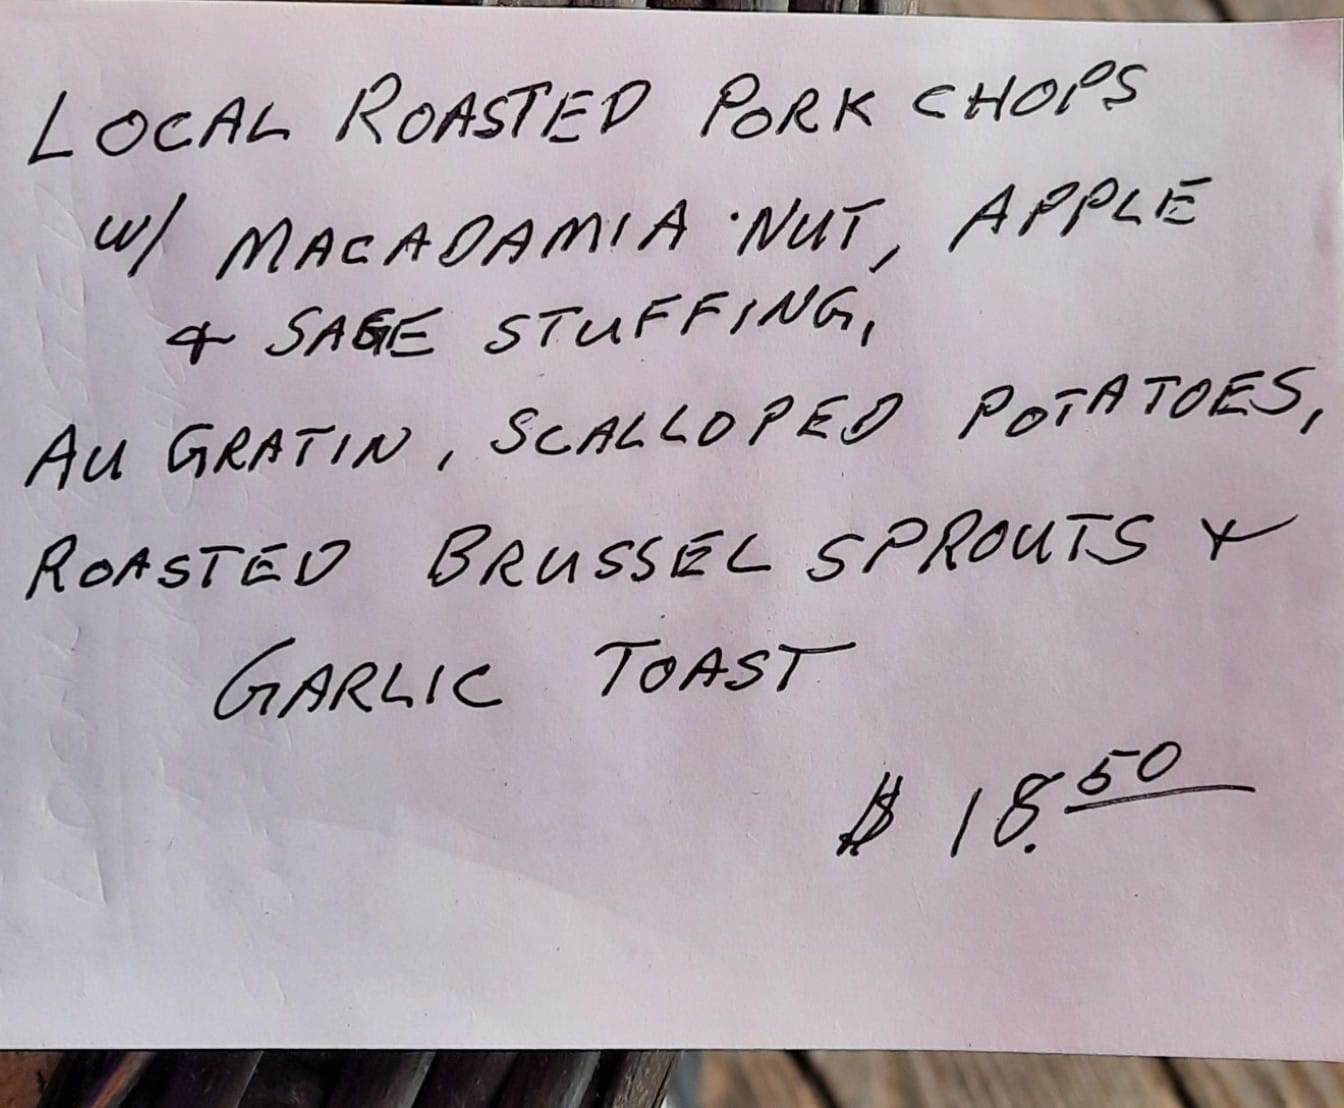 LOCAL ROASTED PORK CHOPS
w/ MACADAMIA NUT, APPLE
& SAGE STUFFING,
AU GRATIN, SCALLOPED POTATOES,
ROASTED BRUSSEL SPROUTS &
GARLIC TOAST
$ 18.50